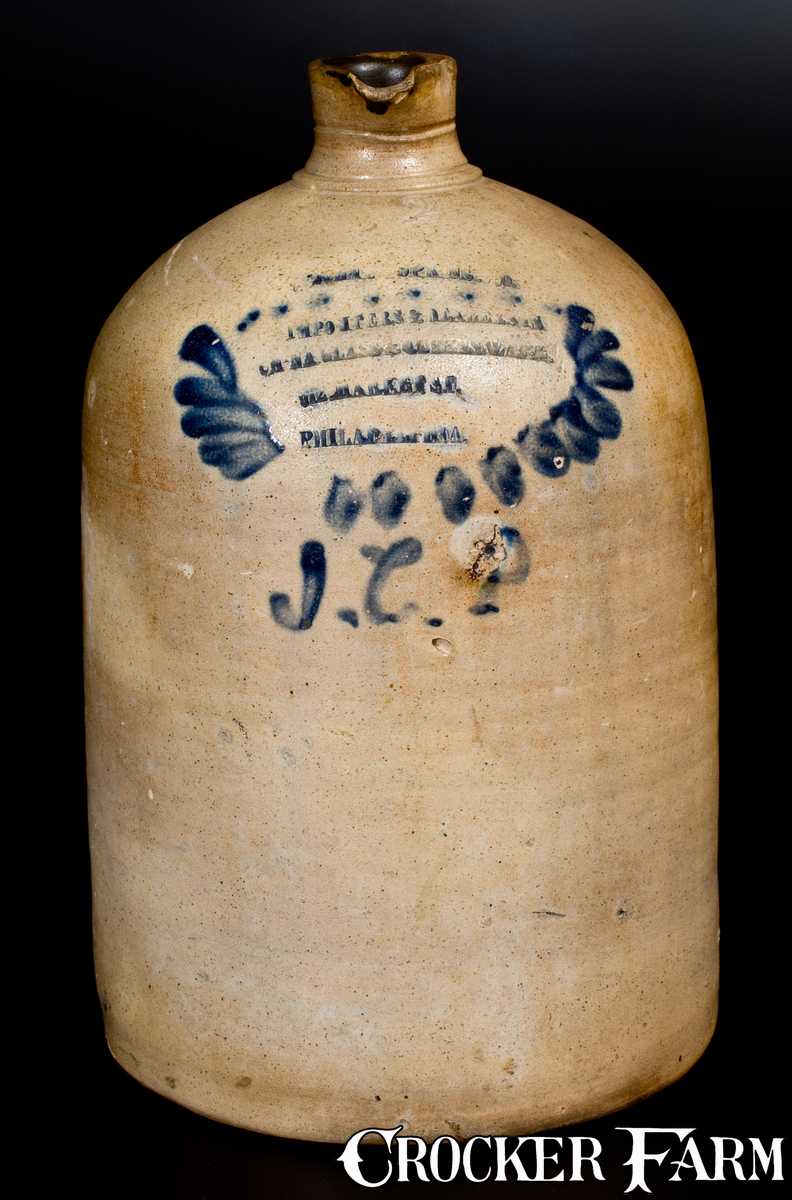 IMPORTERS & DEALERS IN
CHINA GLASS & QUEENSWARE,
MARKET ST.
PHILADELPHIA.
J.C.P
CROCKER FARM